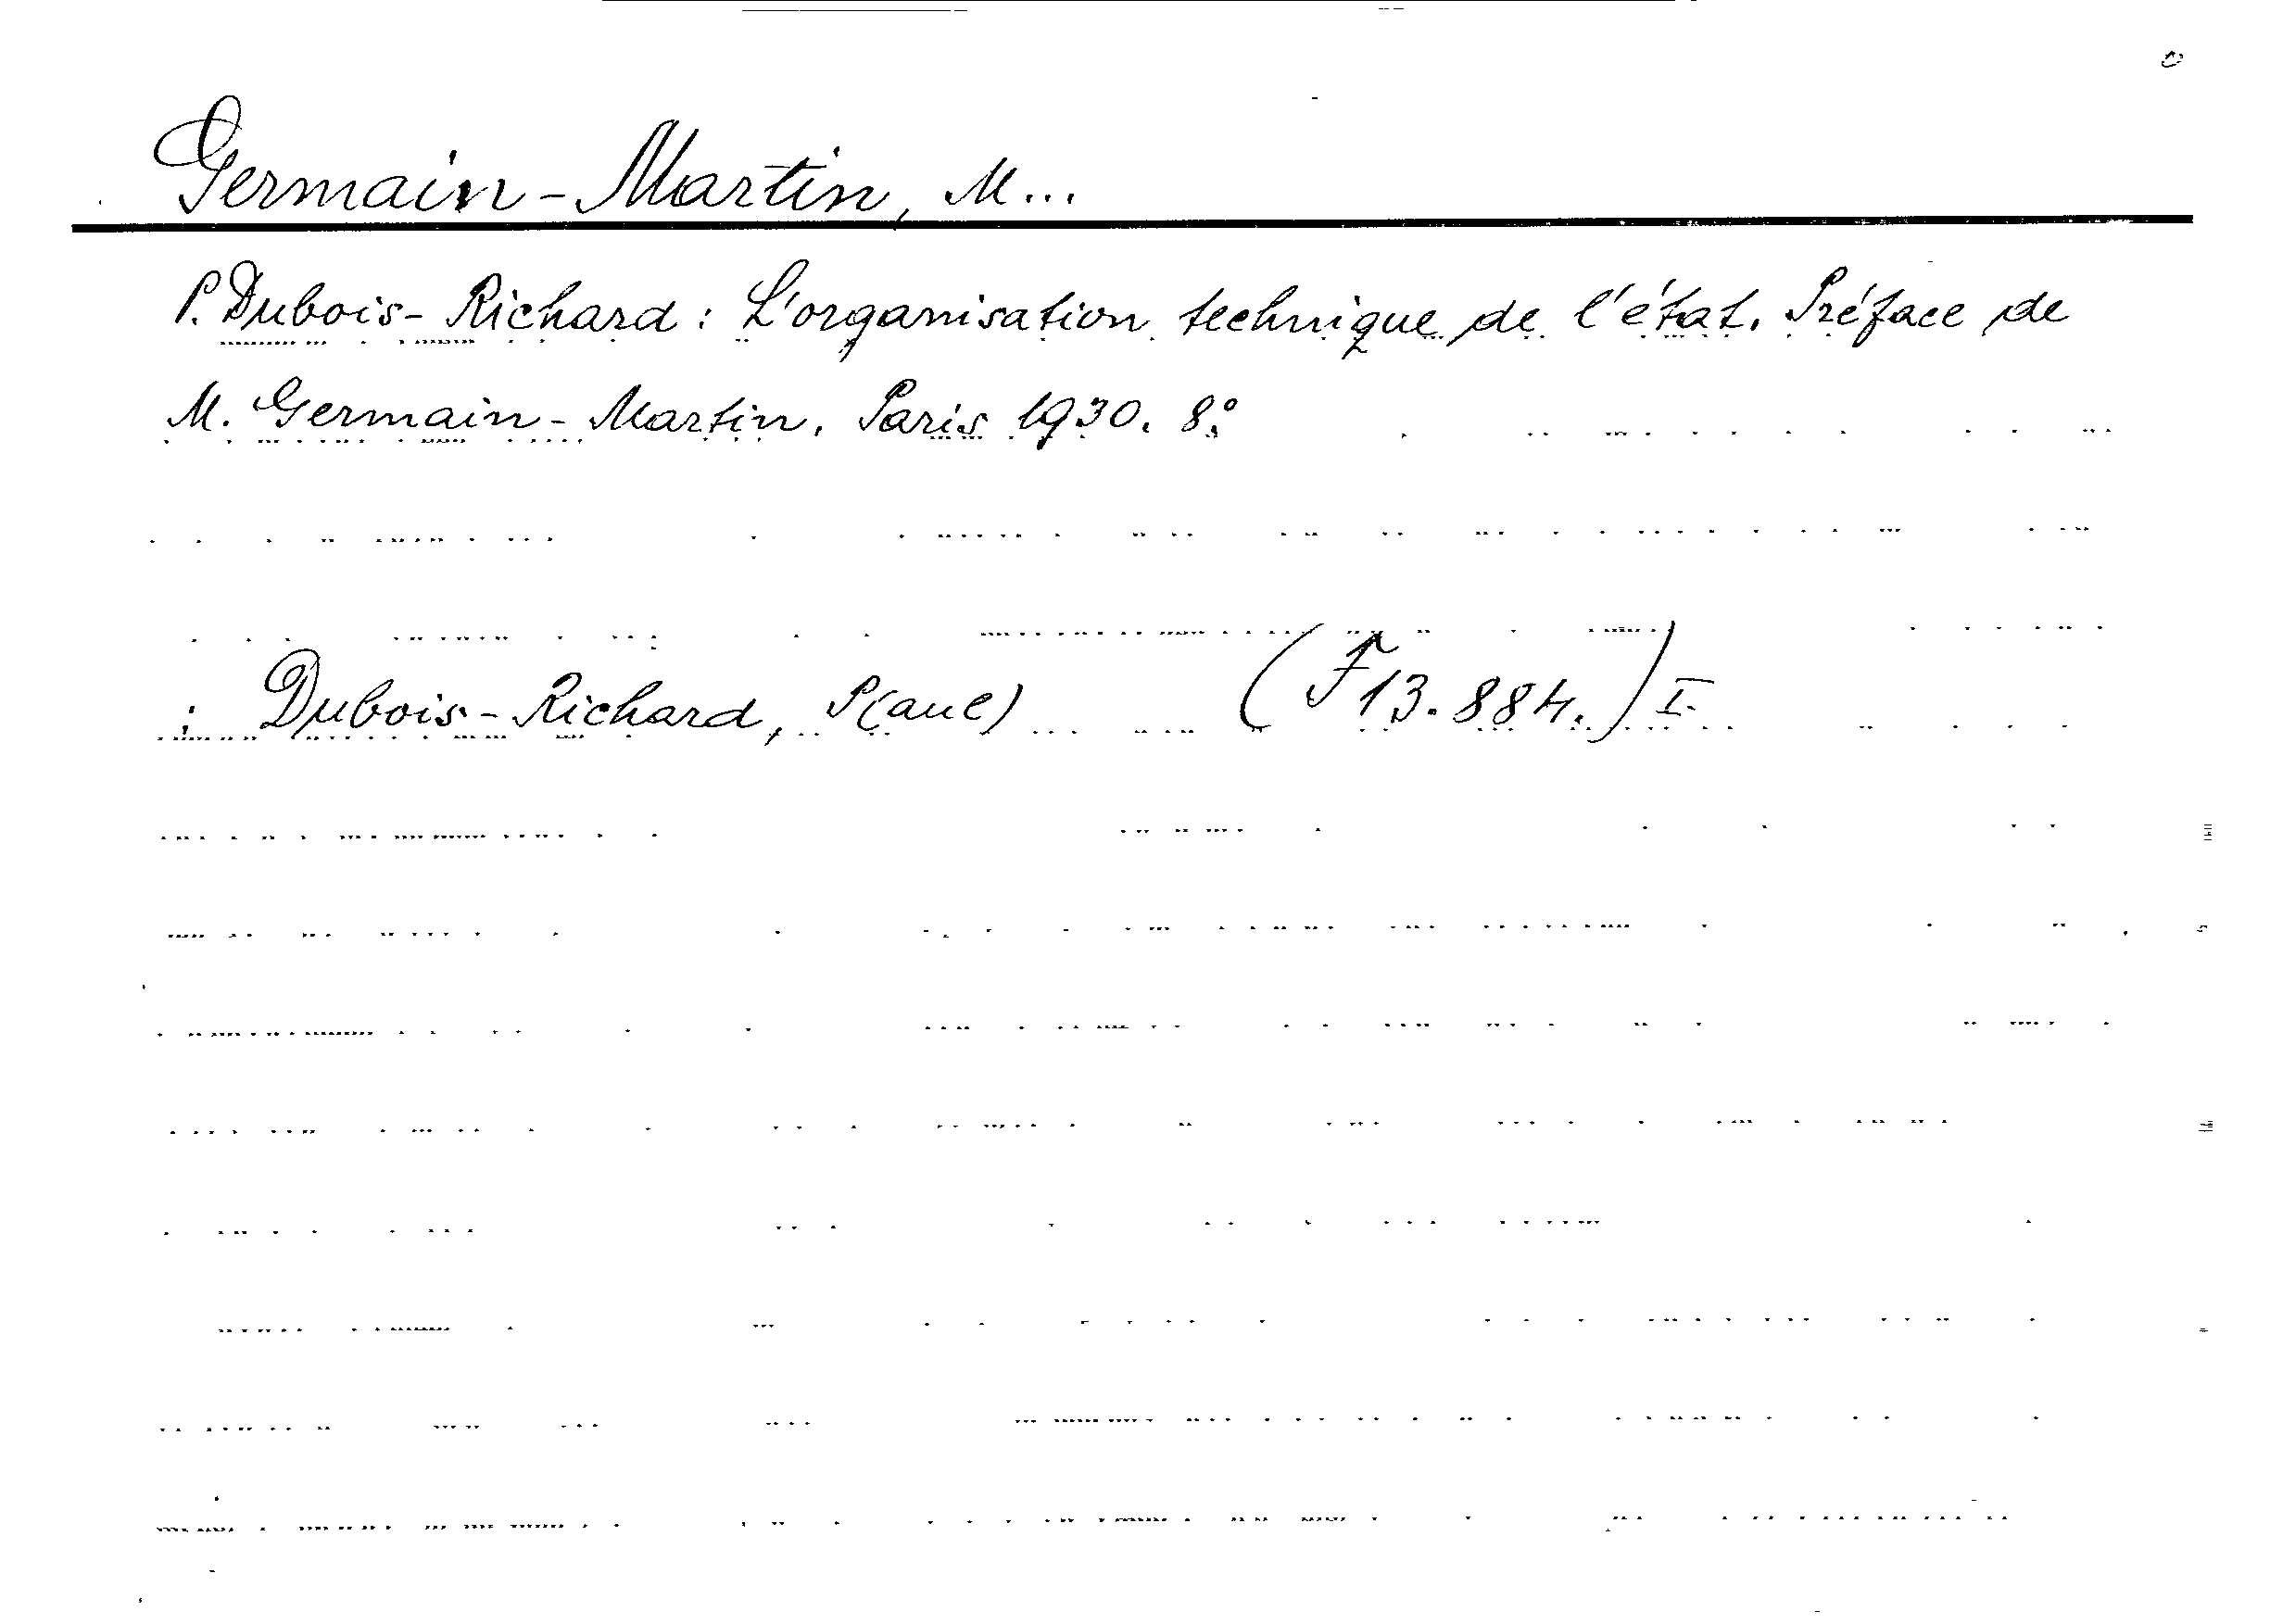 Germain-Martin, M...
P. Dubois-Richard: L'organisation technique de l'état. Préface de
M. Germain-Martin. Paris 1930. 8°
: Dubois-Richard, P(aul) (F 13.884.) I.